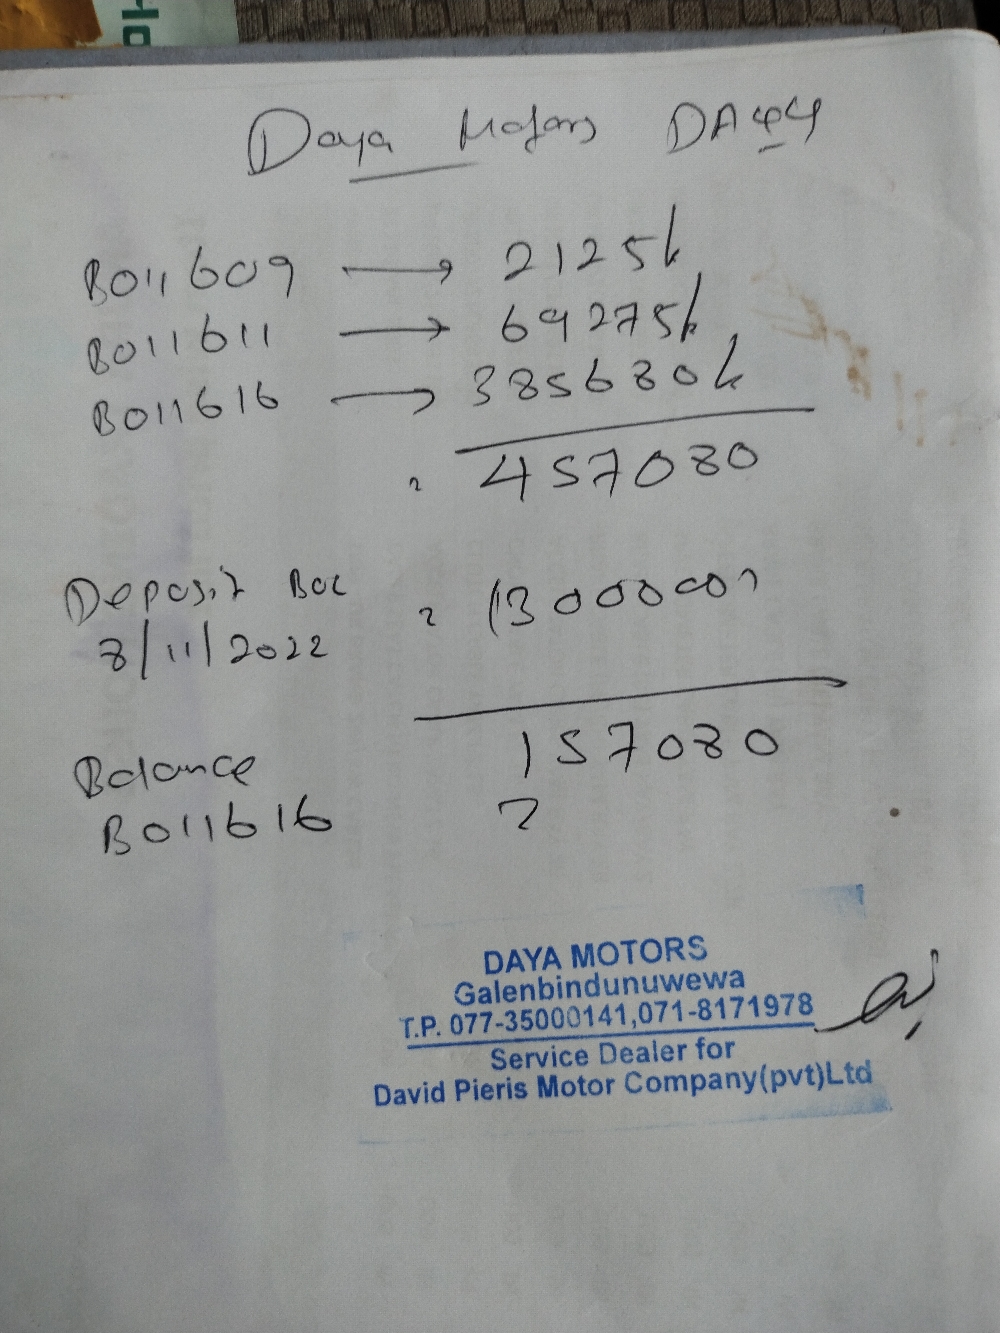 Daya Motors DA44
B011609 → 2125/-
B011611 → 69275/-
B011616 → 385680/-
= 457080
Deposit BOC = (300000)
8/11/2022
157080
Balance
B011616 =
DAYA MOTORS
Galenbindunuwewa
T.P. 077-35000141,071-8171978
Service Dealer for
David Pieris Motor Company(pvt)Ltd